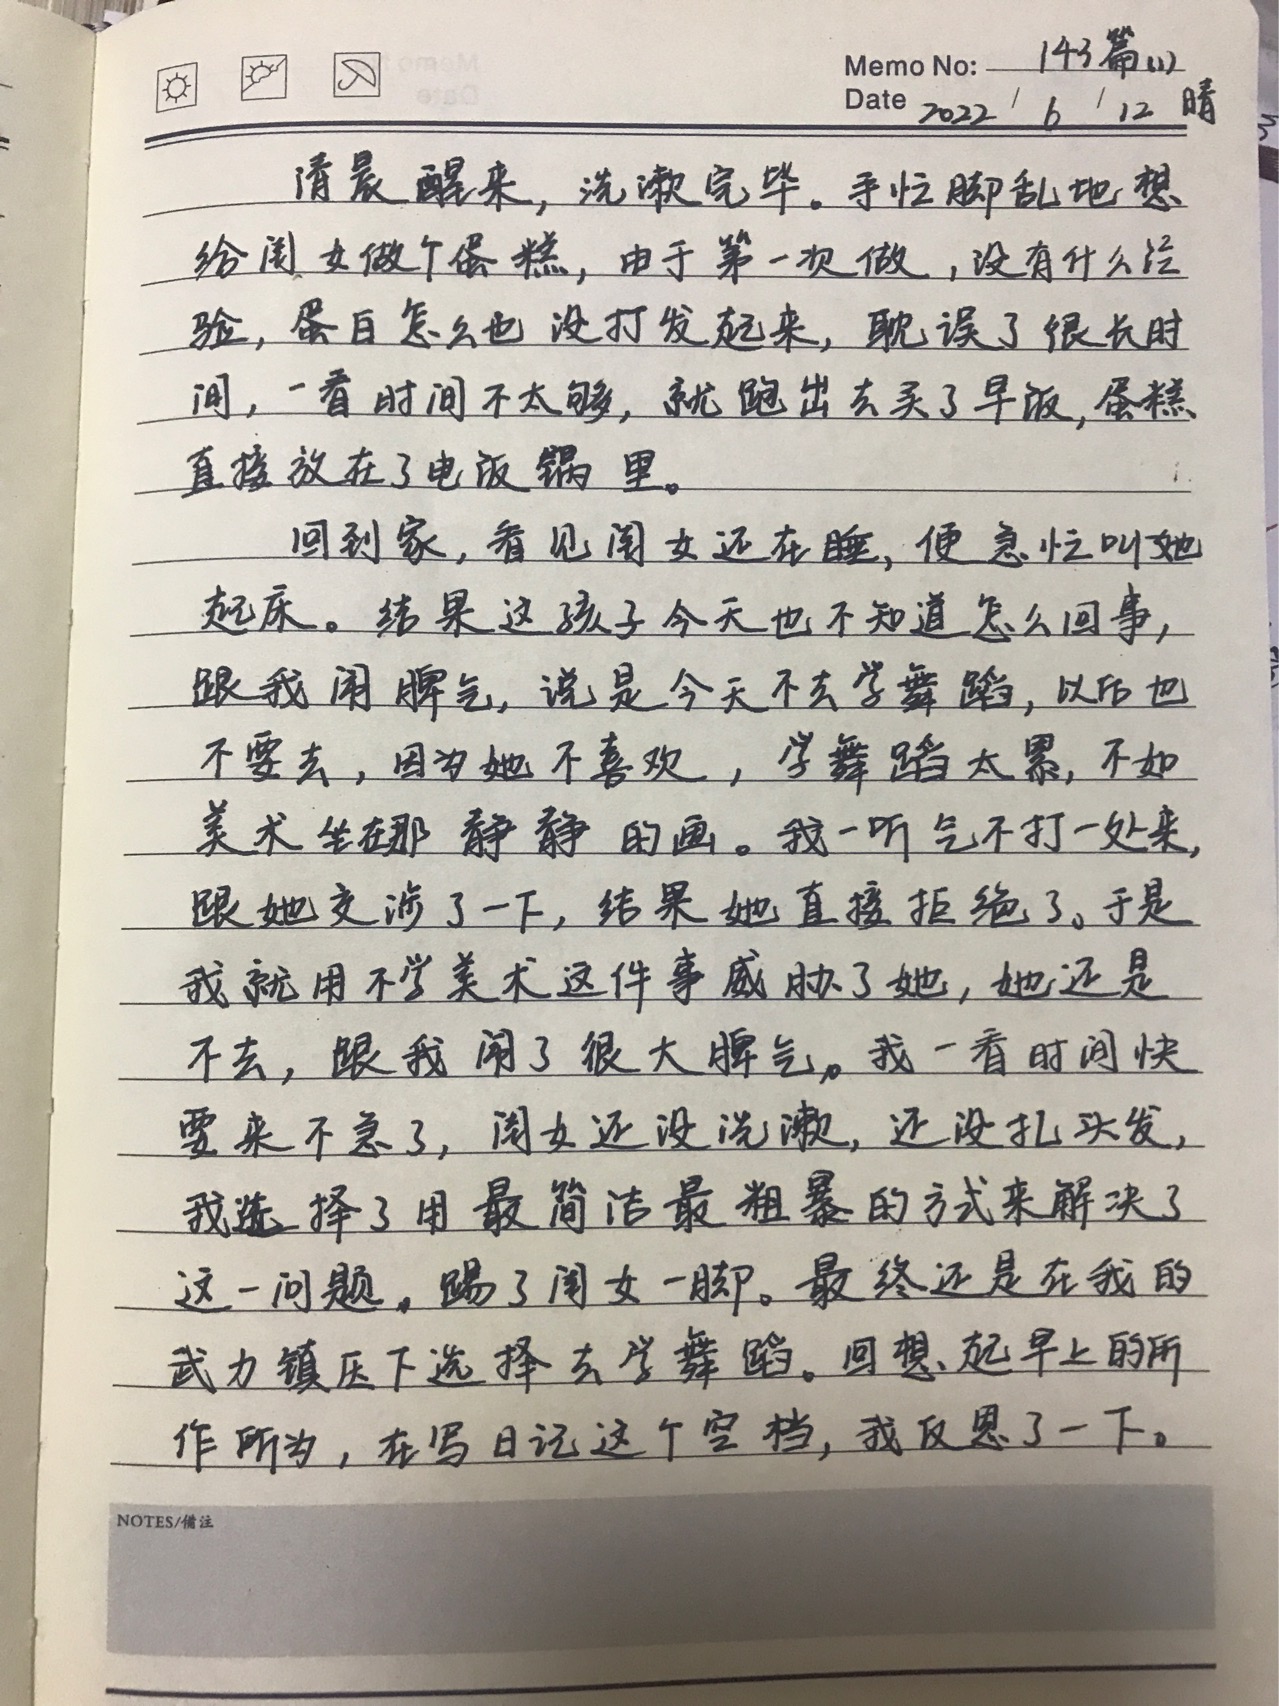 Memo No: 143篇(1)
Date 2022 / 6 / 12 晴
清晨醒来，洗漱完毕。手忙脚乱地想
给闺女做个蛋糕，由于第一次做，没有什么经
验，蛋白怎么也没打发起来，耽误了很长时
间，一看时间不太够，就跑出去买了早饭，蛋糕
直接放在了电饭锅里。
回到家，看见闺女还在睡，便急忙叫她
起床。结果这孩子今天也不知道怎么回事，
跟我闹脾气，说是今天不去学舞蹈，以后也
不要去，因为她不喜欢，学舞蹈太累，不如
美术坐在那静静的画。我一听气不打一处来，
跟她交涉了一下，结果她直接拒绝了。于是
我就用不学美术这件事威胁了她，她还是
不去，跟我闹了很大脾气。我一看时间快
要来不急了，闺女还没洗漱，还没扎头发，
我选择了用最简洁最粗暴的方式来解决了
这一问题。踢了闺女一脚。最终还是在我的
武力镇压下选择去学舞蹈。回想起早上的所
作所为，在写日记这个空档，我反思了一下。
NOTES/備注